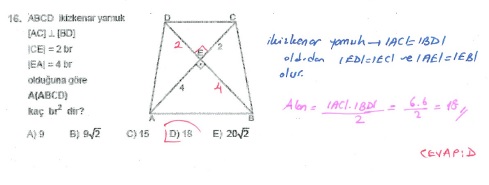 16. ABCD ikizkenar yamuk
[AC] ⊥ [BD]
|CE| = 2 br
|EA| = 4 br
olduğuna göre
A(ABCD)
kaç br² dir?
D C
2 E 2
4 4
A B
A) 9 B) 9√2 C) 15 D) 18 E) 20√2
ikizkenar yamuk → |AC|=|BD|
olduğundan |ED|=|EC| ve |AE|=|EB|
olur.
Alan = |AC|.|BD| / 2 = 6.6 / 2 = 18
CEVAP: D